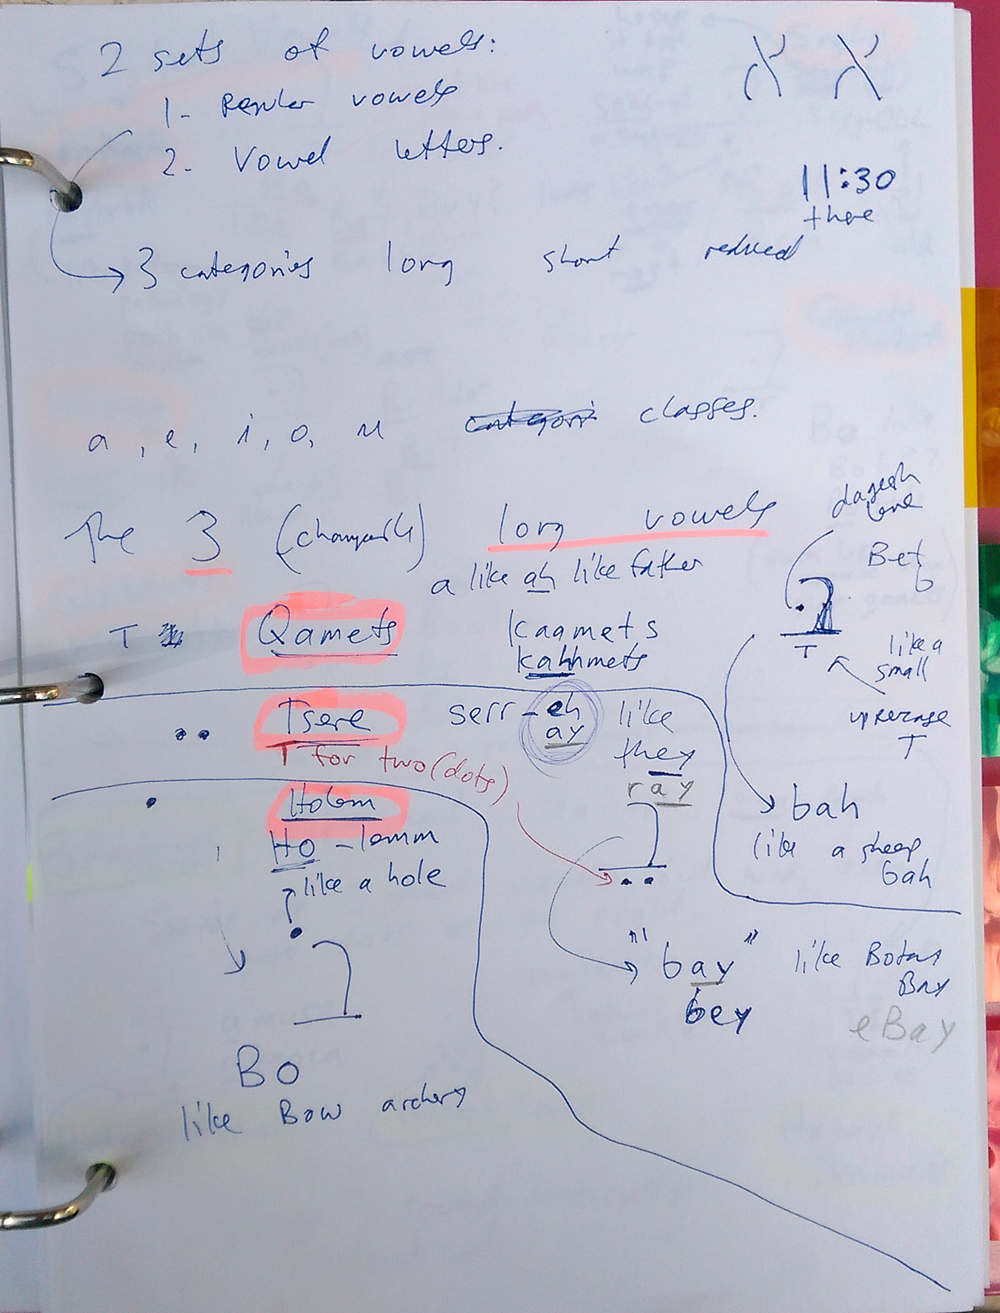 2 sets of vowels:
1- Regular vowels
2- Vowel letters.
א א
11:30
there
→ 3 categories long short reduced
a, e, i, o, u classes.
The 3 (changeable) long vowels
a like ah like father
T Qamets Kaamets
kahhmets
dagesh
lene
Bet
b
like a
small
uppercase
T
bah
like a sheep
bah
Tsere serr-eh like
ay they
T for two (dots) ray
Holem
Ho-lemm
like a hole
"bay" like Botany
Bay
bey eBay
BO
like Bow archery